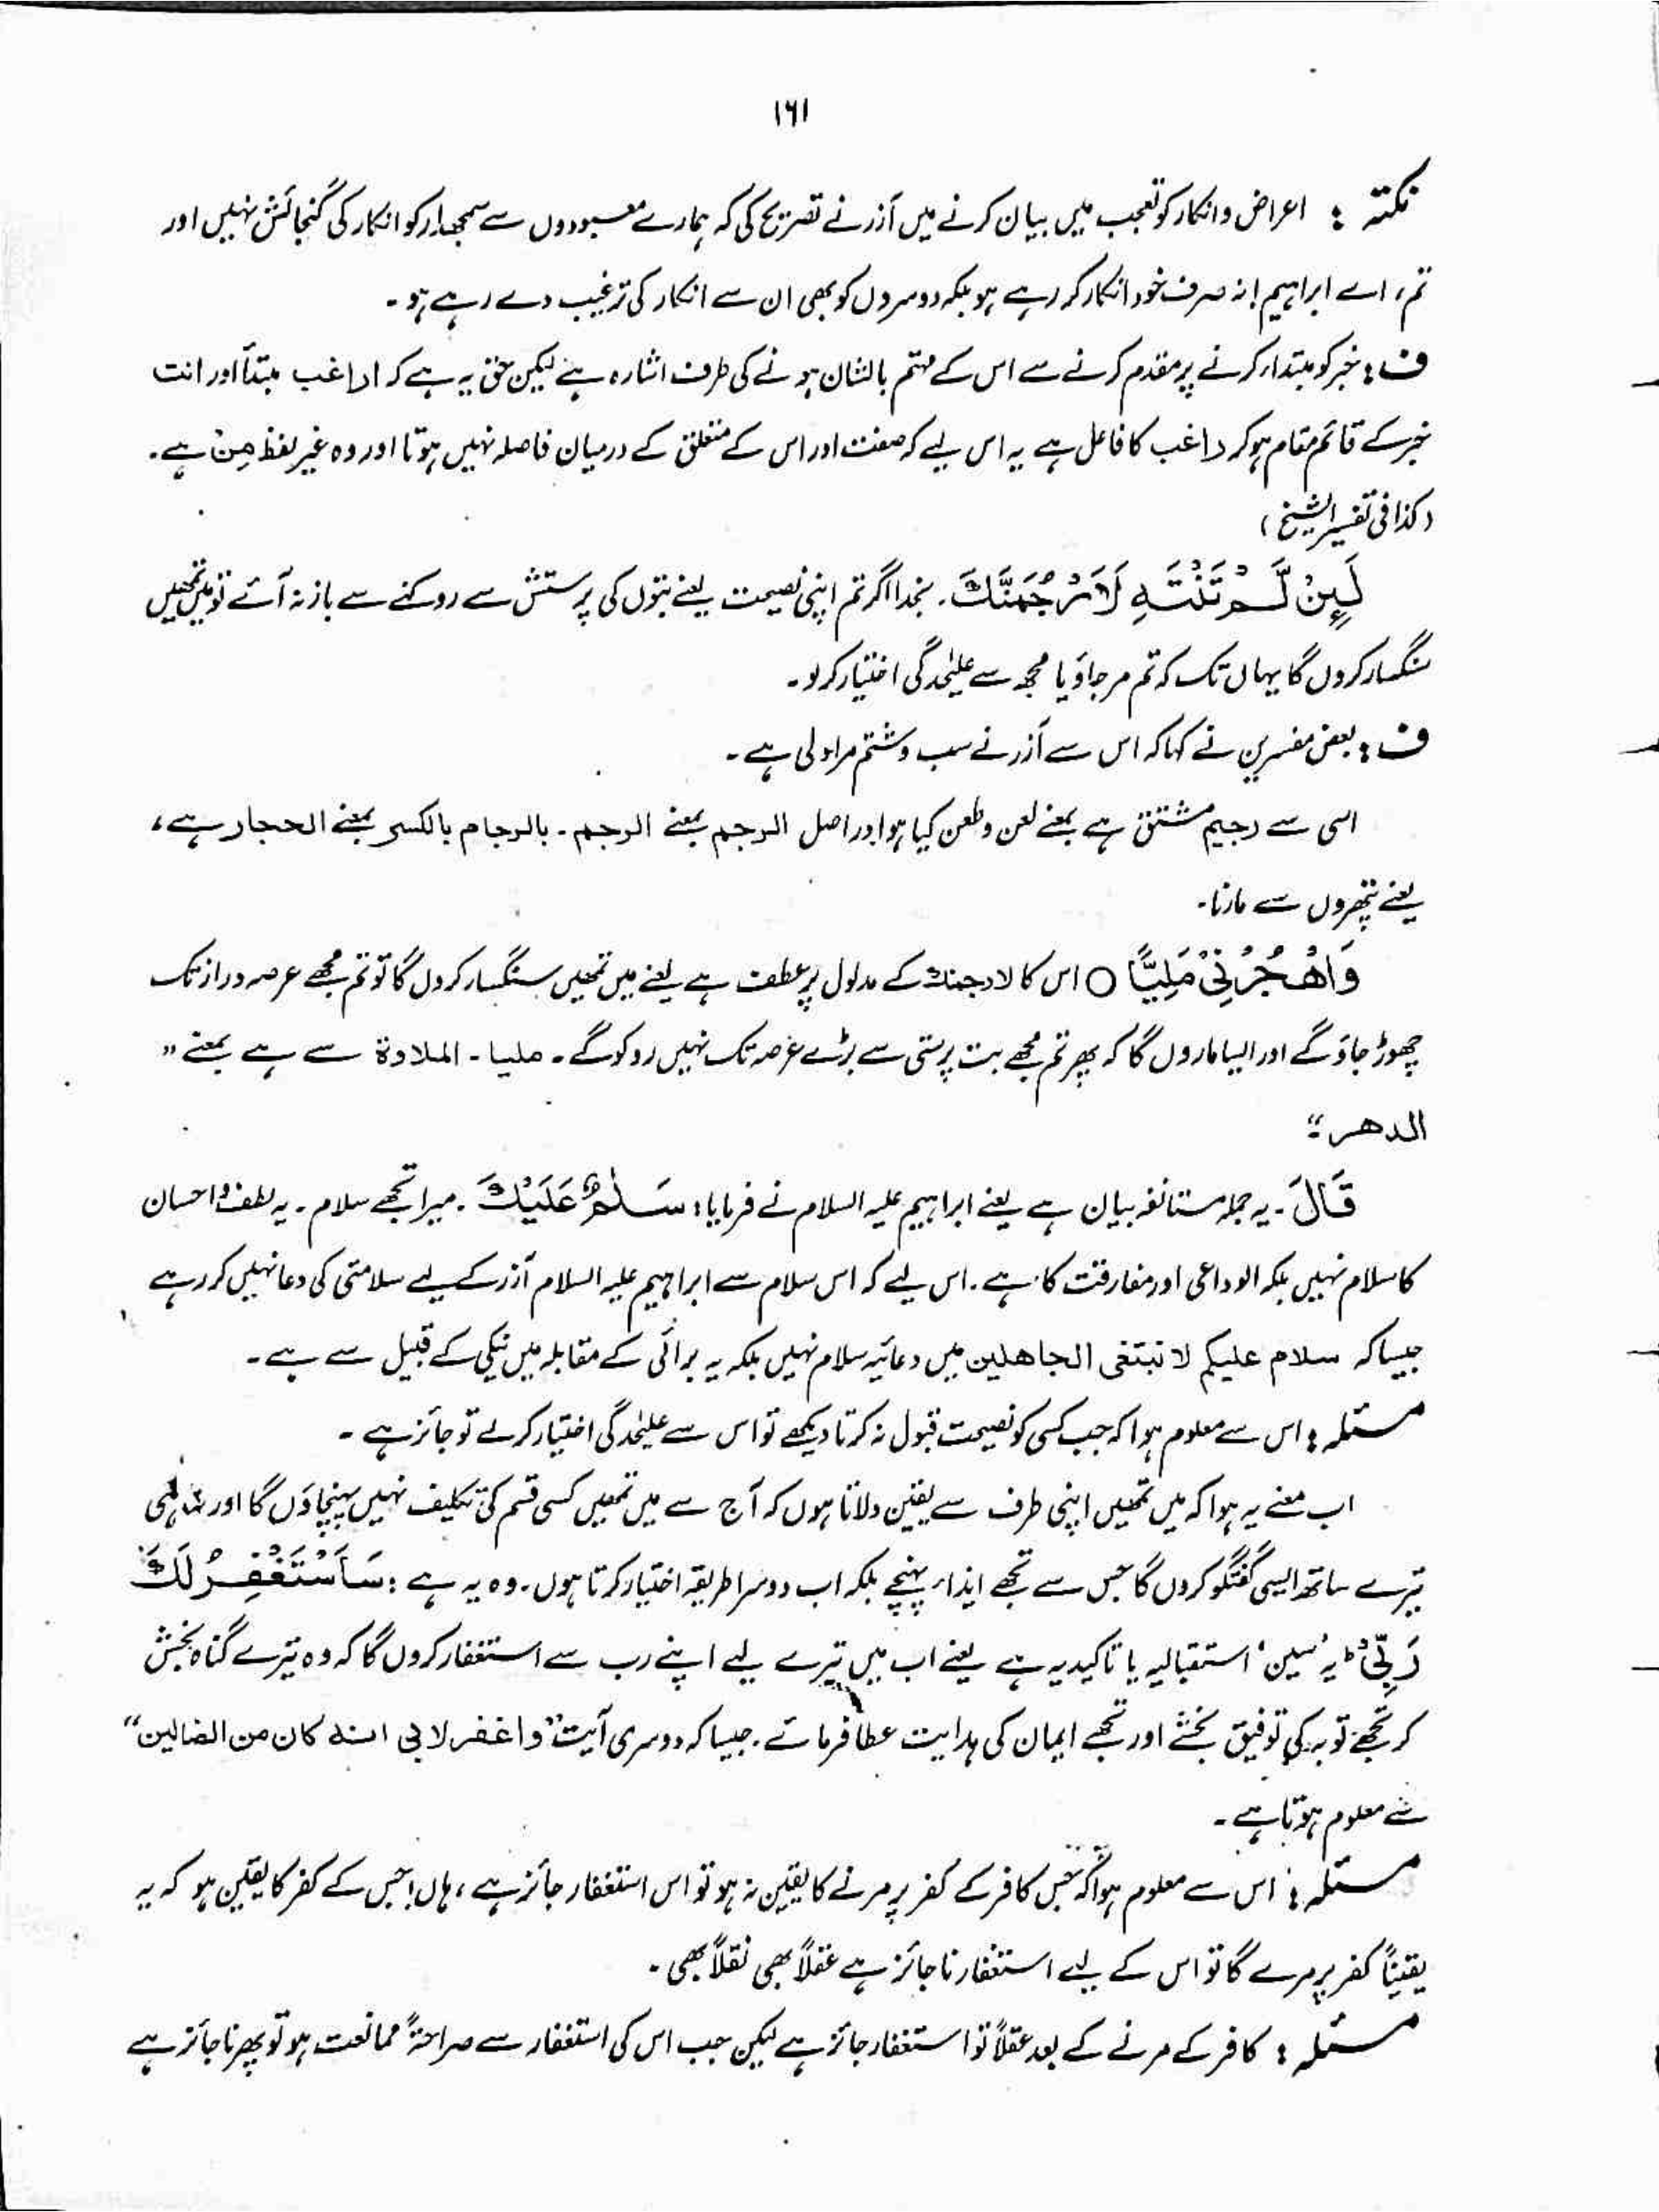 ۱۶۱
نکتہ : اعراض و انکار کو تعجب میں بیان کرنے میں آزر نے تصریح کی کہ ہمارے معبودوں سے سمجھدار کو انکار کی گنجائش نہیں اور
تم، اے ابراہیم! نہ صرف خود انکار کر رہے ہو بلکہ دوسروں کو بھی ان سے انکار کی ترغیب دے رہے ہو۔
ف : خبر کو مبتدا کرنے پر مقدم کرنے سے اس کے مہتم بالشان ہونے کی طرف اشارہ ہے لیکن حق یہ ہے کہ اراغب مبتدأ اور انت
خبر کے قائم مقام ہو کر راغب کا فاعل ہے یہ اس لیے کہ صفت اور اس کے متعلق کے درمیان فاصلہ نہیں ہوتا اور وہ غیر لفظ من ہے۔
(کذا فی تفسیر الشیخ)
لَئِنْ لَّمْ تَنْتَهِ لَاَرْجُمَنَّكَ۔ بخدا اگر تم اپنی نصیحت یعنے بتوں کی پرستش سے روکنے سے باز نہ آئے تو میں تمھیں
سنگسار کروں گا یہاں تک کہ تم مر جاؤ یا مجھ سے علیٰحدگی اختیار کر لو۔
ف : بعض مفسرین نے کہا کہ اس سے آزر نے سب و شتم مراد لی ہے۔
اسی سے رجیم مشتق ہے بمعنے لعن و طعن کیا ہوا اور اصل الرجم بمعنے الرجم۔ بالرجام بالکسر بمعنے الحجار ہے،
یعنے پتھروں سے مارنا۔
وَاهْجُرْنِیْ مَلِیًّا ○ اس کا لارجمنك کے مدلول پر عطف ہے یعنے میں تمھیں سنگسار کروں گا تو تم مجھے عرصہ دراز تک
چھوڑ جاؤ گے اور ایسا ماروں گا کہ پھر تم مجھے بت پرستی سے بڑے عرصہ تک نہیں روکو گے۔ ملیا۔ الملاوة سے ہے بمعنے "
الدهر"۔
قَالَ۔ یہ جملہ مستانفہ بیان ہے یعنے ابراہیم علیہ السلام نے فرمایا : سَلٰمٌ عَلَیْكَ۔ میرا تجھے سلام۔ یہ لطف و احسان
کا سلام نہیں بلکہ الوداعی اور مفارقت کا ہے۔ اس لیے کہ اس سلام سے ابراہیم علیہ السلام آزر کے لیے سلامتی کی دعا نہیں کر رہے
جیسا کہ سلام علیکم لا نبتغی الجاهلین میں دعائیہ سلام نہیں بلکہ یہ برائی کے مقابلہ میں نیکی کے قبیل سے ہے۔
مسئلہ : اس سے معلوم ہوا کہ جب کسی کو نصیحت قبول نہ کرتا دیکھے تو اس سے علیٰحدگی اختیار کر لے تو جائز ہے۔
اب معنے یہ ہوا کہ میں تمھیں اپنی طرف سے یقین دلاتا ہوں کہ آج سے میں تمھیں کسی قسم کی تکلیف نہیں پہنچاؤں گا اور نہ ہی
تیرے ساتھ ایسی گفتگو کروں گا جس سے تجھے ایذاء پہنچے بلکہ اب دوسرا طریقہ اختیار کرتا ہوں۔ وہ یہ ہے : سَاَسْتَغْفِرُ لَكَ
رَبِّیْ ط یہ 'سین' استقبالیہ یا تاکیدیہ ہے یعنے اب میں تیرے لیے اپنے رب سے استغفار کروں گا کہ وہ تیرے گناہ بخش
کر تجھے توبہ کی توفیق بخشے اور تجھے ایمان کی ہدایت عطا فرمائے۔ جیسا کہ دوسری آیت "واغفر لابی انہ کان من الضالین"
سے معلوم ہوتا ہے۔
مسئلہ : اس سے معلوم ہوا کہ جس کافر کے کفر پر مرنے کا یقین نہ ہو تو اس استغفار جائز ہے، ہاں! جس کے کفر کا یقین ہو کہ یہ
یقیناً کفر پر مرے گا تو اس کے لیے استغفار ناجائز ہے عقلاً بھی نقلاً بھی۔
مسئلہ : کافر کے مرنے کے بعد عقلاً تو استغفار جائز ہے لیکن جب اس کی استغفار سے صراحۃً ممانعت ہو تو پھر ناجائز ہے